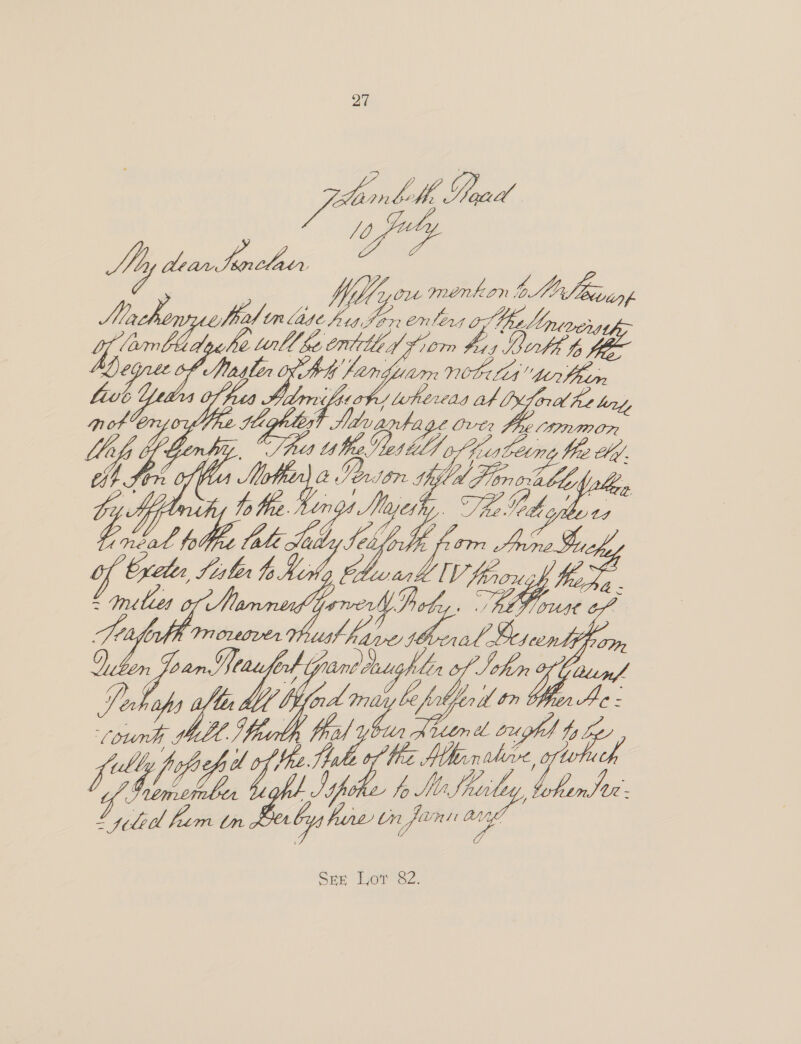 27
7 Lambeth Road
10 July
My dear Sinclair
Will you mention to Mr Stewart
Mackenzie that in Case his Son enters of the University
of Cambridge he will be entitled from his Birth to the
Degree of Master of Arts "tanquam nobilis" within
two Years of his Admission, whereas at Oxford he will
not enjoy the slightest Advantage over the common
Class of Gentry. This is the Result of his being the eld-
est Son of (his Mother) a Person styl'd Honorable
by Affinity to the King's Majesty. The Pedigree is
lineal to the late Lady Seaforth from Anne Duchess
of Exeter, Sister to King Edward IV through the Fa-
= milies of Manners Gower & Roby. The House of
Seaforth moreover must have several Descents from
Queen Joan Beaufort Grand daughter of John of Gaunt
Perhaps after all Oxford may be preffer'd on other Ac=
-counts still I think that your Friend ought to be
fully possess'd of the State of the Alternative, of which
if I remember right I spoke to Mr Shirley, when I vi-
= sited him in Derbyshire in January.
SEE LOT 82.